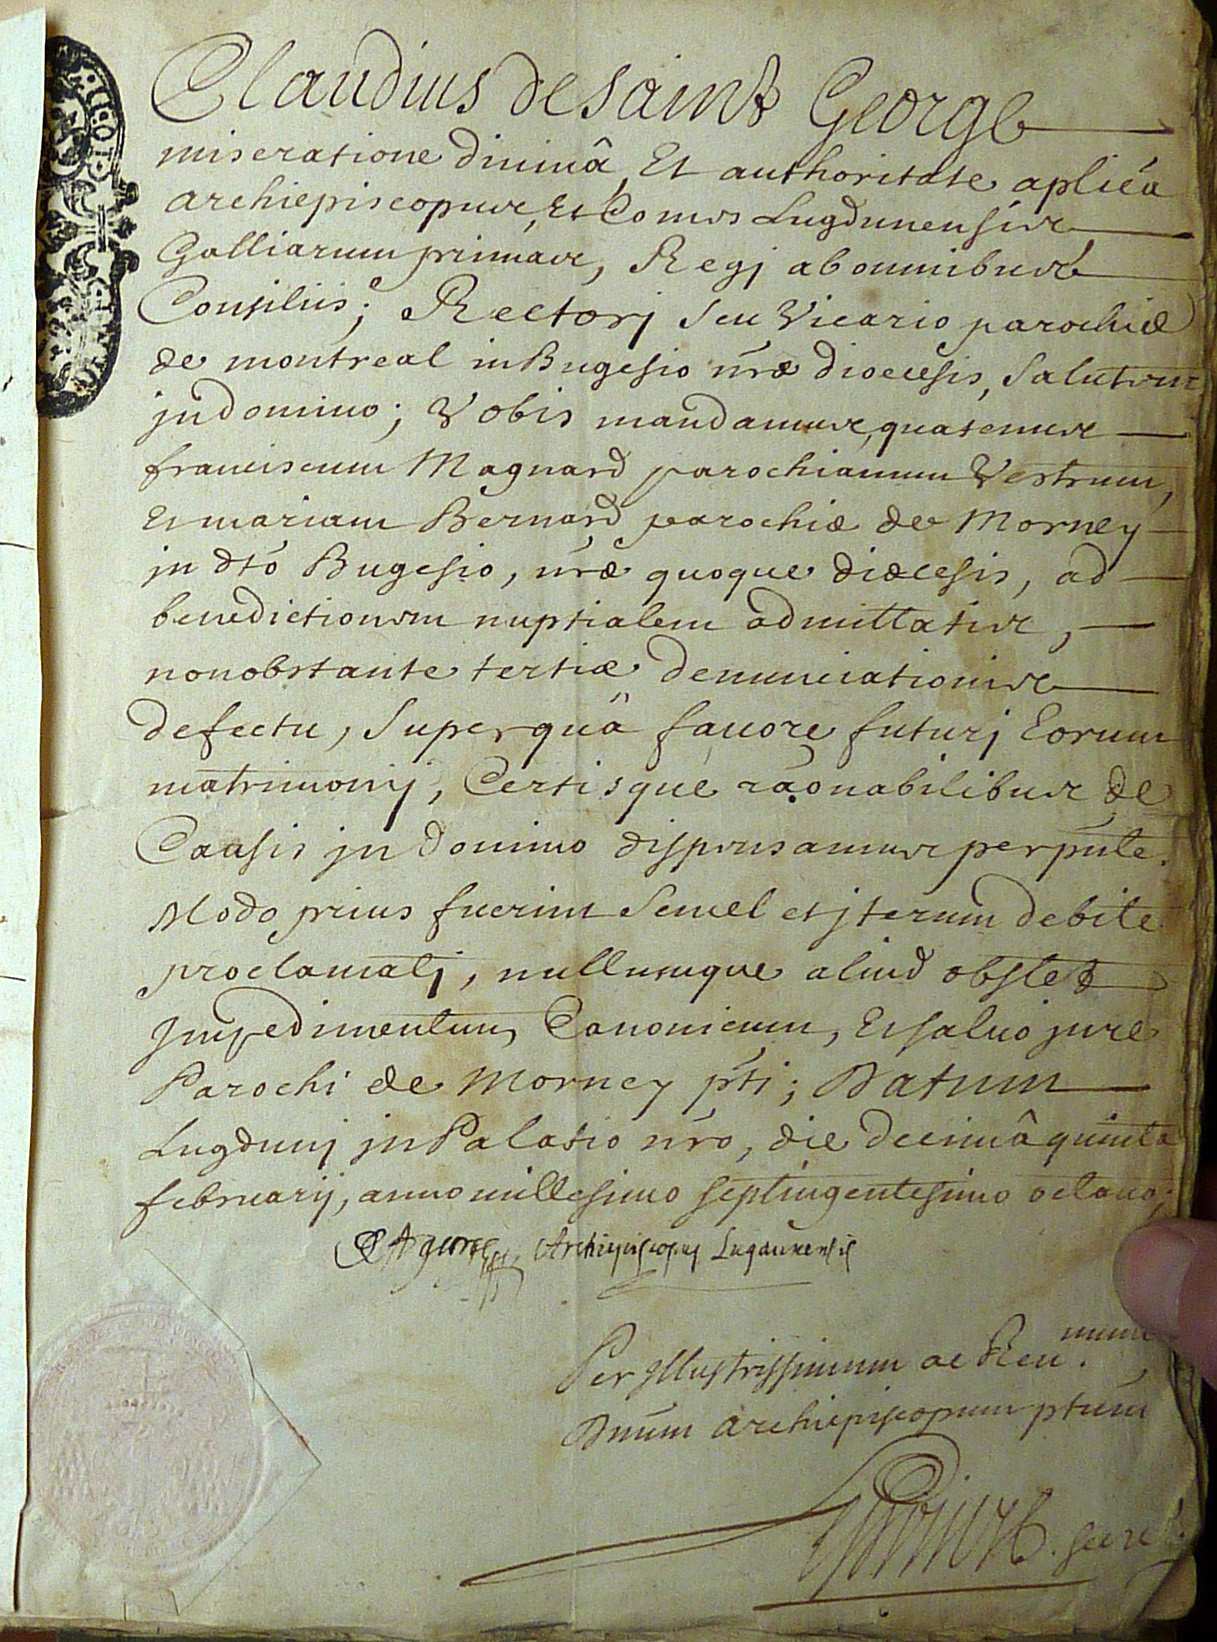 Claudius de saint George
miseratione divinâ, Et authoritate aplicâ
archiepiscopus, Et Comes Lugdunensis,
Galliarum primas, Regj ab omnibus
Consiliis; Rectorj seu Vicario parochiæ
de montreal in Bugesio nræ dioecesis, Salutem
jn domino; Vobis mandamus, quatenus
franciscum Magnard parochianum Vestrum,
Et mariam Bernard parochiæ de Morney
jn dto Bugesio, nræ quoque diœcesis, ad
benedictionem nuptialem admittatis,
non obstante tertiæ denunciationis
defectu, Super quâ favore futurj Eorum
matrimonij, Certisque raõnabilibus de
Causis jn domino dispensamus per pntes.
Modo prius fuerint Semel et jterum debite
proclamatj, nullumque aliud obstet
Jmpedimentum Canonicum, Et salvo jure
Parochi de Morney pti; Datum
Lugdunj jn Palatio nro, die decimâ quinta
februarij, anno millesimo septingentesimo octavo.
Archiepiscopus Lugdunensis
Per jllustrissimum ac Reu.mum
Dnum archiepiscopum ptum
secret.